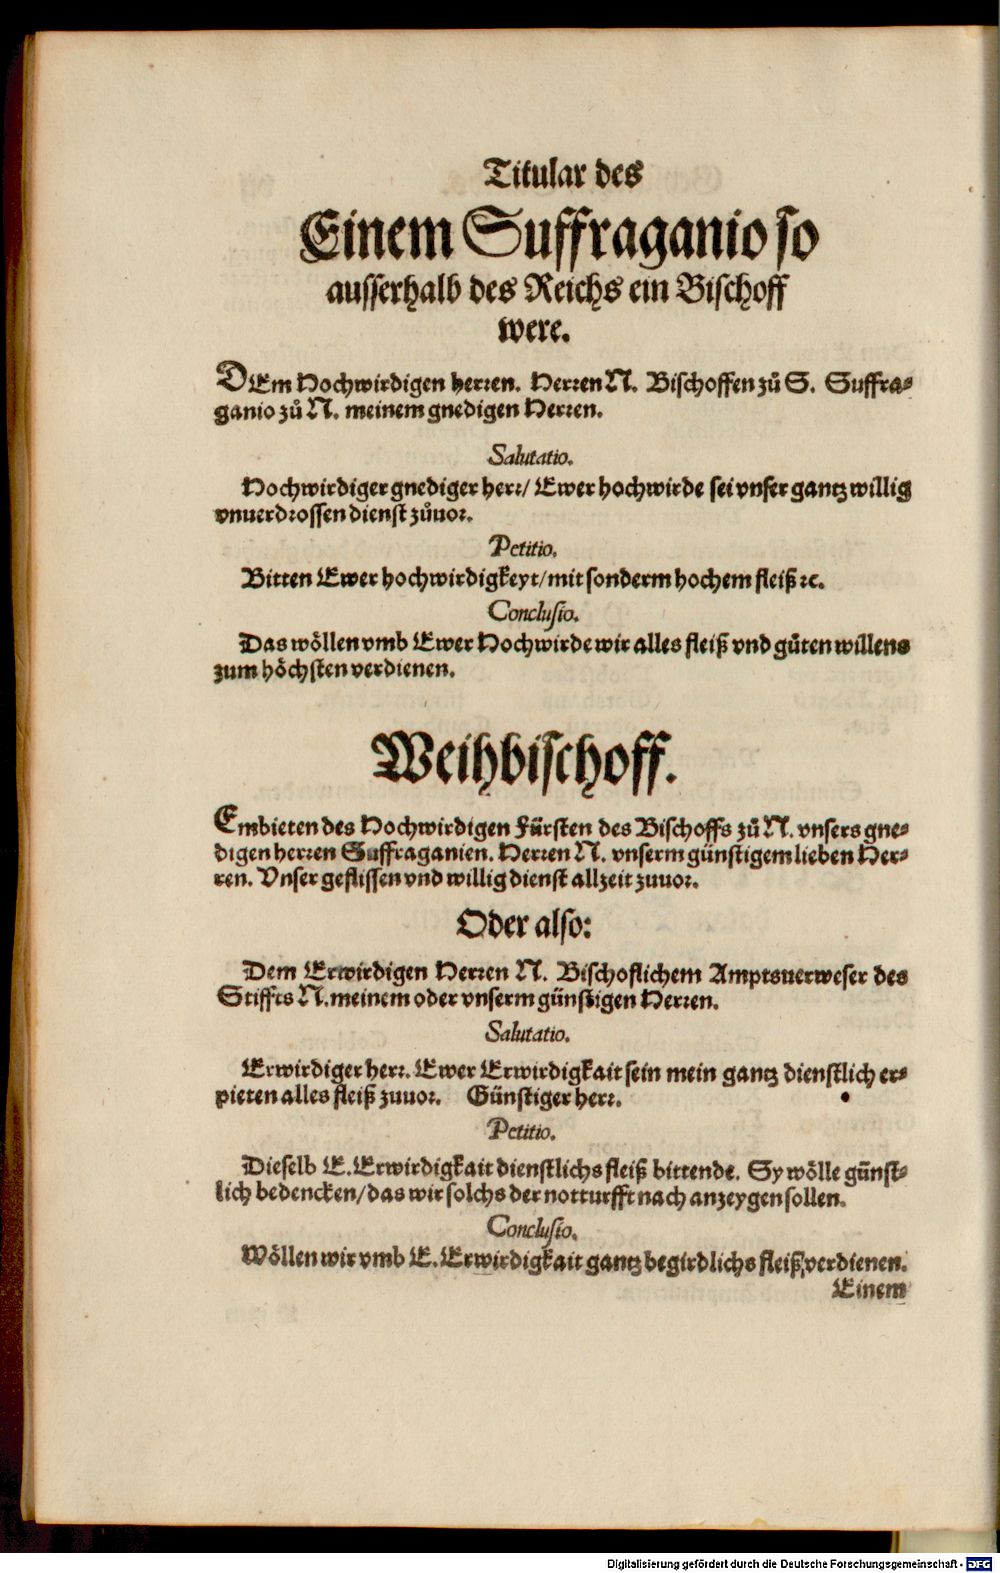 Titular des
Einem Suffraganio so
ausserhalb des Reichs ein Bischoff
were.
DEm Hochwirdigen herren. Herren N. Bischoffen zů S. Suffra-
ganio zů N. meinem gnedigen Herren.
Salutatio.
Hochwirdiger gnediger herr/ Ewer hochwirde sei vnser gantz willig
vnuerdrossen dienst zůuor.
Petitio.
Bitten Ewer hochwirdigkeyt/ mit sonderm hochem fleiß ꝛc.
Conclusio.
Das wöllen vmb Ewer Hochwirde wir alles fleiß vnd gůten willens
zum höchsten verdienen.
Weihbischoff.
Embieten des Hochwirdigen Fürsten des Bischoffs zů N. vnsers gne-
digen herren Suffraganien. Herren N. vnserm günstigem lieben Her-
ren. Vnser geflissen vnd willig dienst allzeit zuuor.
Oder also:
Dem Erwirdigen Herren N. Bischoflichem Amptsuerweser des
Stiffts N. meinem oder vnserm günstigen Herren.
Salutatio.
Erwirdiger herr. Ewer Erwirdigkait sein mein gantz dienstlich er-
pieten alles fleiß zuuor. Günstiger herr.
Petitio.
Dieselb E. Erwirdigkait dienstlichs fleiß bittende. Sy wölle günst-
lich bedencken/ das wir solchs der notturfft nach anzeygen sollen.
Conclusio.
Wöllen wir vmb E. Erwirdigkait gantz begirdlichs fleiß verdienen.
Einem
Digitalisierung gefördert durch die Deutsche Forschungsgemeinschaft - DFG